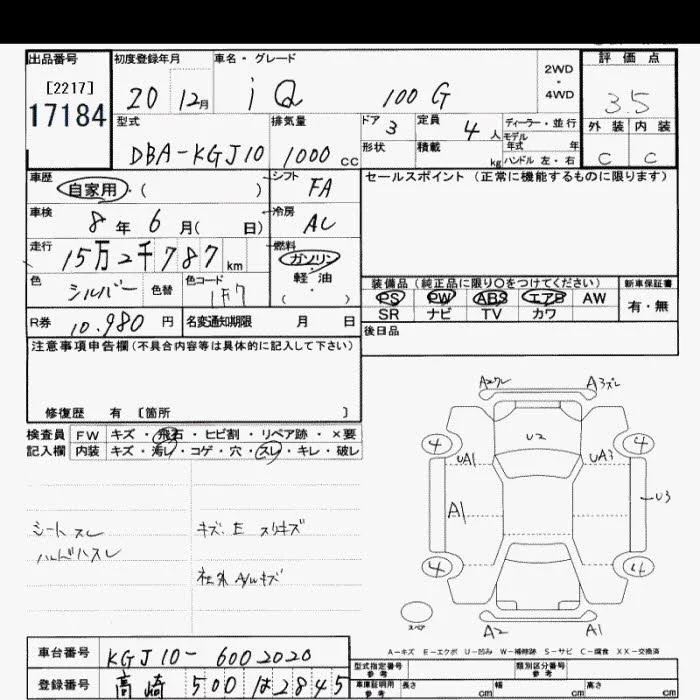 出品番号 初度登録年月 車名・グレード 2WD・4WD 評価点
[2217]
17184 20 12月 iQ 100G 35
型式 排気量 ドア 3 定員 4人 ディーラー・並行 外装 内装
DBA-KGJ10 1000cc 形状 積載 kg モデル年式 年 ハンドル 左・右 C C
車歴 自家用・( ) シフト FA セールスポイント(正常に機能するものに限ります)
車検 8年6月( 日) 冷房 AC
走行 15万2千787km 燃料 ガソリン・軽油・( )
色 シルバー 色替 色コード 1F7
装備品(純正品に限り○をつけてください) 新車保証書
PS PW ABS エアB AW 有・無
SR ナビ TV カワ
R券 10,980円 名変通知期限 月 日 後日品
注意事項申告欄(不具合内容等は具体的に記入して下さい)
修復歴 有 〔箇所 〕
検査員 FW キズ・飛石・ヒビ割・リペア跡・×要
記入欄 内装 キズ・汚れ・コゲ・穴・スレ・キレ・破レ
シートスレ キズ、E スリキズ
ハンドルスレ
社外A/Wキズ
A2ワレ A3ズレ
4 U2 4
UA1 UA3
A1 U3
4 4
スペア
A2 A1
A-キズ E-エクボ U-凹み W-補修跡 S-サビ C-腐食 XX-交換済
車台番号 KGJ10-6002020 型式指定番号 参考 類別区分番号 参考
登録番号 高崎 500 は 2845 車庫証明用 参考 長さ cm 幅 cm 高さ cm